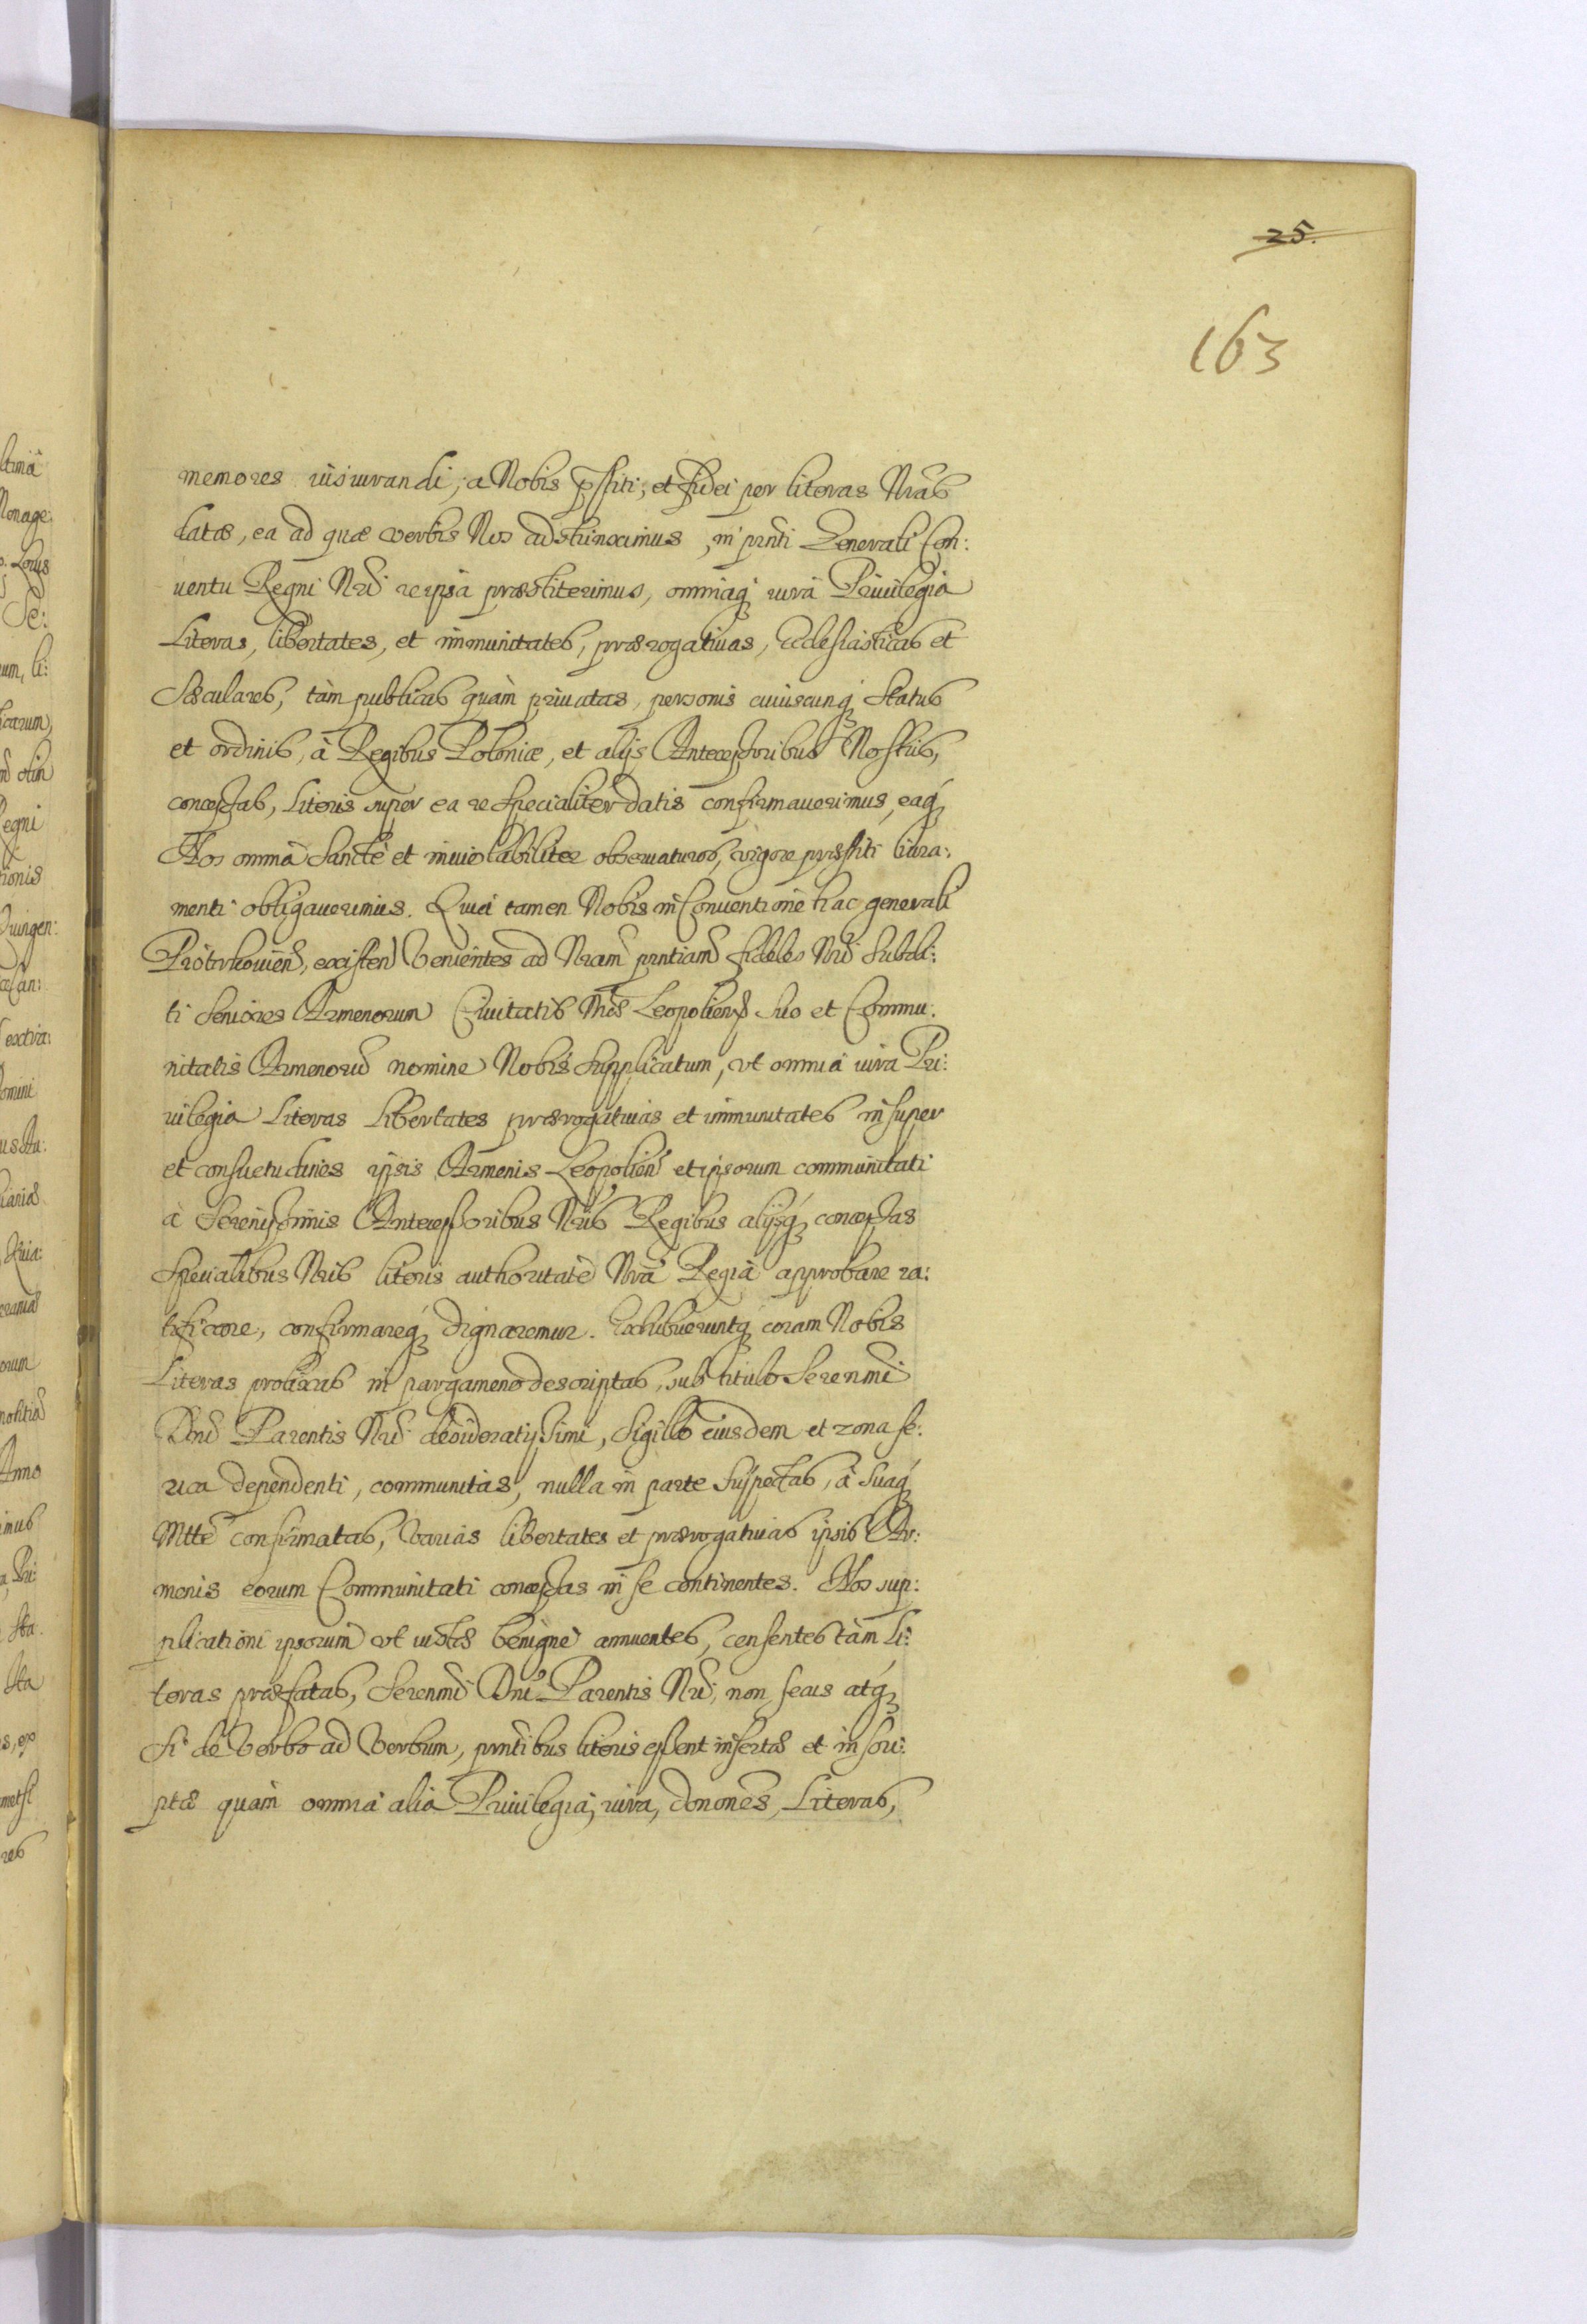 25.
163
memores iusiurandi, a Nobis pr̄stiti, et fidei per literas Nr̄as
datæ, ea ad quæ verbis Nos adstrinximus, in pr̄nti Generali Con:
uentu Regni Nr̄i reipsa præstiterimus, omniaq́ iura Priuilegia
Literas, libertates, et immunitates, prærogatiuas, Ecclesiasticas et
Sæculares, tàm publicas quàm priuatas, personis cuiuscunq́ Status
et ordinis, à Regibus Poloniæ, et alijs Antecessoribus Nostris,
concessas, Literis super ea re Specialiter datis confirmauerimus, eaq́
Nos omnia Sanctè et inuiolabiliter obseruaturos, vigore præstiti Iura:
menti obligauerimus. Quia tamen Nobis in Conuentione hac generali
Piotrkouien̄, existen̄ Venientes ad Nram̄ prntiam̄ fideles Nr̄i Subdi:
ti Seniores Armenorum Ciuitatis Nr̄æ Leopolien̄ Suo et Commu:
nitatis Armenorū nomine Nobis Supplicatum, vt omnia iura Pri:
uilegia Literas Libertates prærogatiuas et immunitates insuper
et consuetudines ipsis Armenis Leopolien̄ et ipsorum communitati
à Serenissimis Antecessoribus Nr̄is Regibus alijsq́ concessas
Specialibus Nr̄is literis authoritate Nr̄a Regia approbare ra:
tificare, confirmareq́ dignaremur. Exhibueruntq́ coram Nobis
Literas prolixas in pargameno descriptas, sub titulo Serenmī
Dnī Parentis Nr̄i desideratissimi, Sigillo eiusdem et zona se:
rica dependenti, communitas, nulla in parte Suspectas, à Suaq́
Mtte confirmatas, Varias libertates et prærogatiuas ipsis Ar:
menis eorum Communitati concessas in se continentes. Nos sup:
plicationi ipsorum vt iustæ benignè annuentes, censentes tàm Li:
teras præfatas, Serenmī Dnī Parentis Nr̄i, non secus atq́
Si de Verbo ad Verbum, prntibus literis essent insertæ et inscri:
ptæ quàm omnia alia Priuilegia, iura, dononēs, Literas,